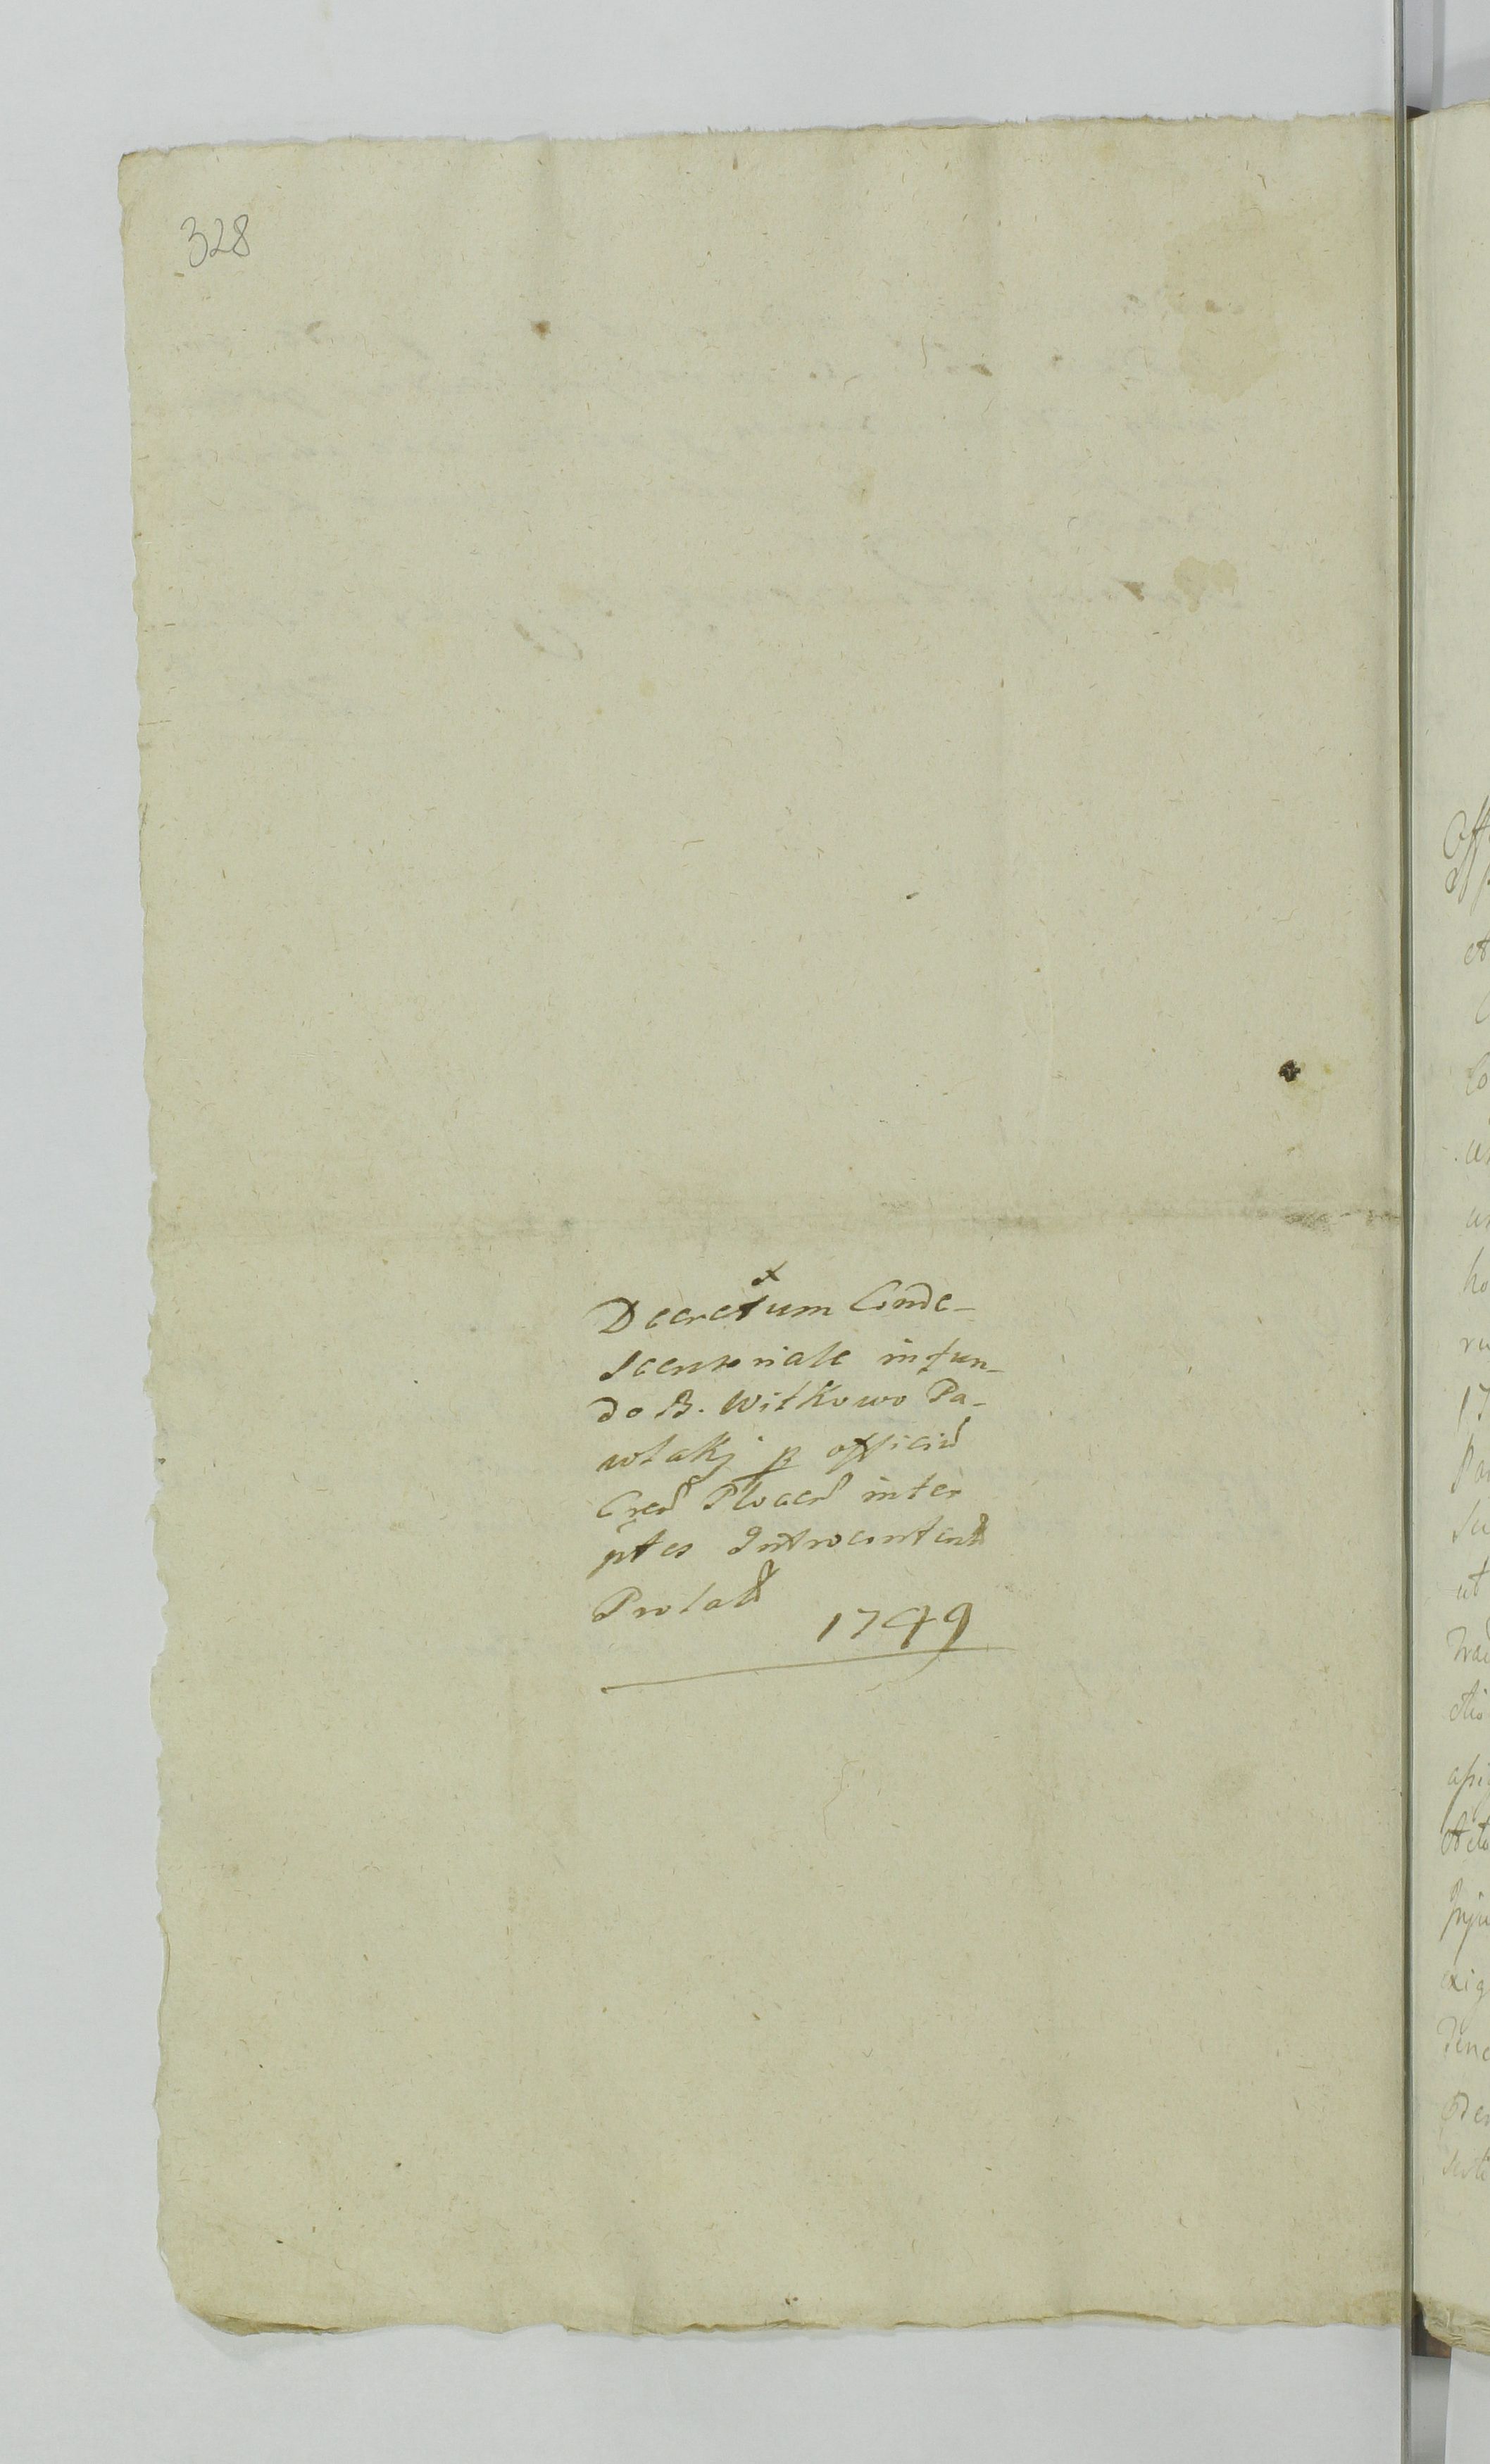 328
Decretum Conde-
scensoriale in fun-
do B. Witkowo Pa-
wlaki p officiu
Cren Plocen inter
ptes Introcontent
Prolat
1749